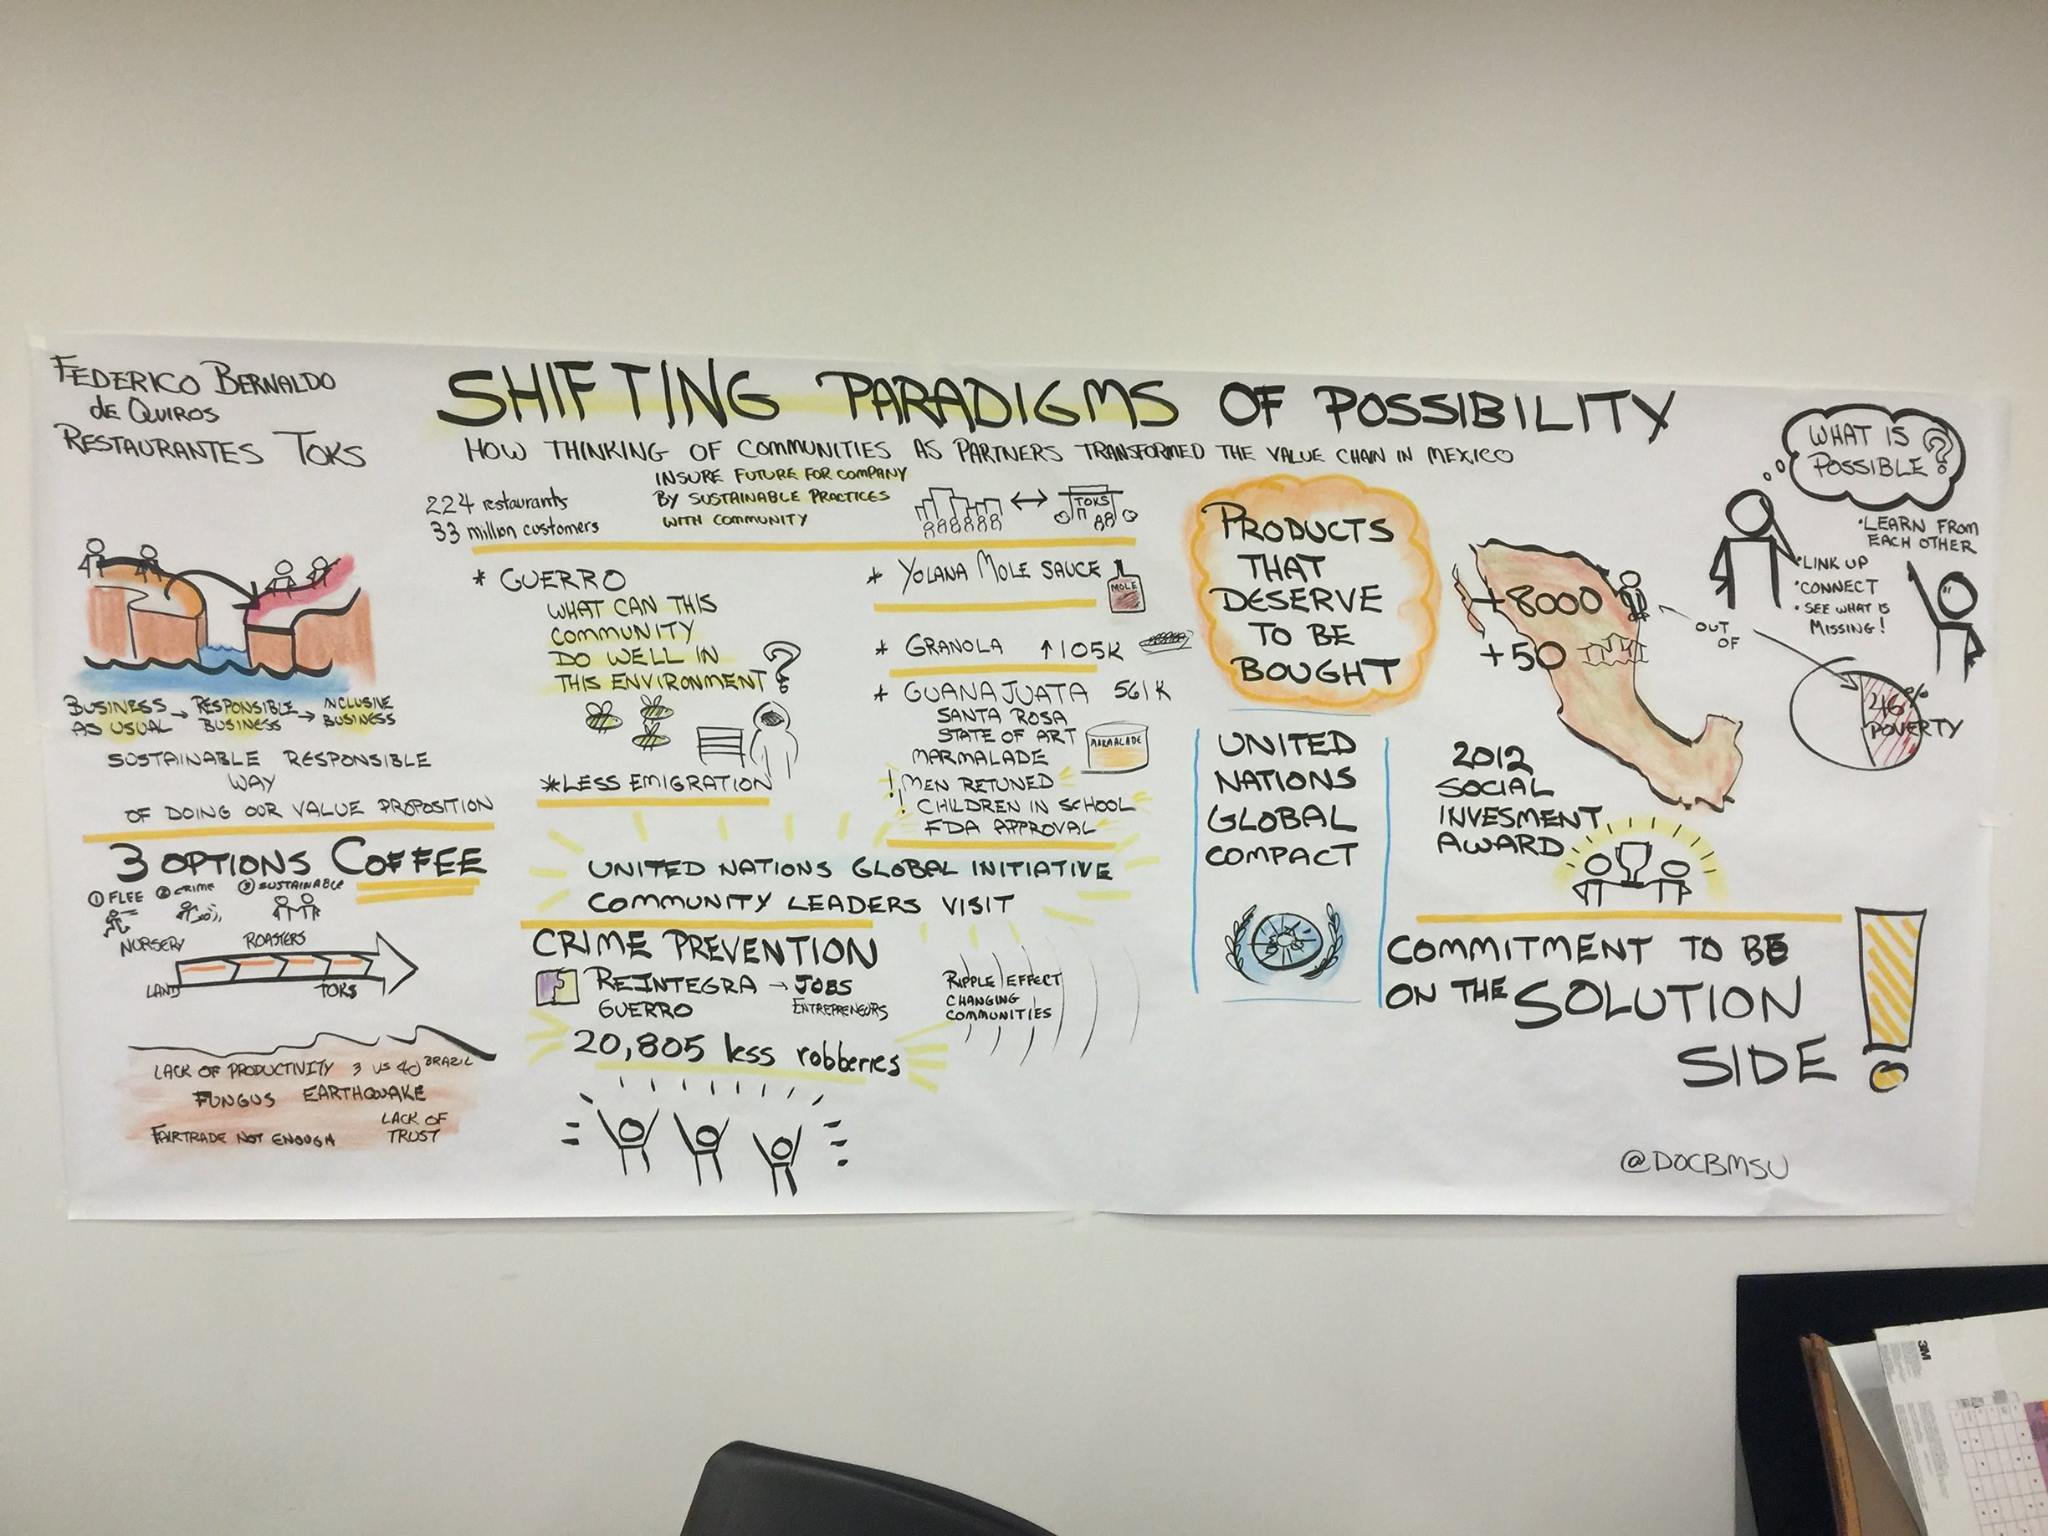 FEDERICO BERNALDO
de QUIROS
RESTAURANTES TOKS
SHIFTING PARADIGMS OF POSSIBILITY
HOW THINKING OF COMMUNITIES AS PARTNERS TRANSFORMED THE VALUE CHAIN IN MEXICO
224 restaurants
33 million customers
INSURE FUTURE FOR COMPANY
BY SUSTAINABLE PRACTICES
WITH COMMUNITY
TOKS
BUSINESS AS USUAL → RESPONSIBLE BUSINESS → INCLUSIVE BUSINESS
SUSTAINABLE RESPONSIBLE
WAY
OF DOING OUR VALUE PROPOSITION
3 OPTIONS COFFEE
① FLEE ② CRIME ③ SUSTAINABLE
NURSERY ROASTERS
LAND TOKS
LACK OF PRODUCTIVITY 3 VS 40 BRAZIL
FUNGUS EARTHQUAKE
FAIRTRADE NOT ENOUGH
LACK OF
TRUST
* GUERRO
WHAT CAN THIS
COMMUNITY
DO WELL IN
THIS ENVIRONMENT?
*LESS EMIGRATION
* YOLANA MOLE SAUCE
MOLE
* GRANOLA ↑105K
* GUANAJUATA 561K
SANTA ROSA
STATE OF ART
MARMALADE
MARMALADE
! MEN RETUNED
! CHILDREN IN SCHOOL
FDA APPROVAL
UNITED NATIONS GLOBAL INITIATIVE
COMMUNITY LEADERS VISIT
CRIME PREVENTION
REINTEGRA → JOBS
GUERRO ENTREPRENEURS
20,805 less robberies
RIPPLE EFFECT
CHANGING
COMMUNITIES
PRODUCTS
THAT
DESERVE
TO BE
BOUGHT
UNITED
NATIONS
GLOBAL
COMPACT
+8000
+50
OUT
OF
46%
POVERTY
WHAT IS
POSSIBLE?
• LEARN FROM
EACH OTHER
• LINK UP
• CONNECT
• SEE WHAT IS
MISSING!
2012
SOCIAL
INVESMENT
AWARD
COMMITMENT TO BE
ON THE SOLUTION
SIDE!
@DOCBMSU
3M